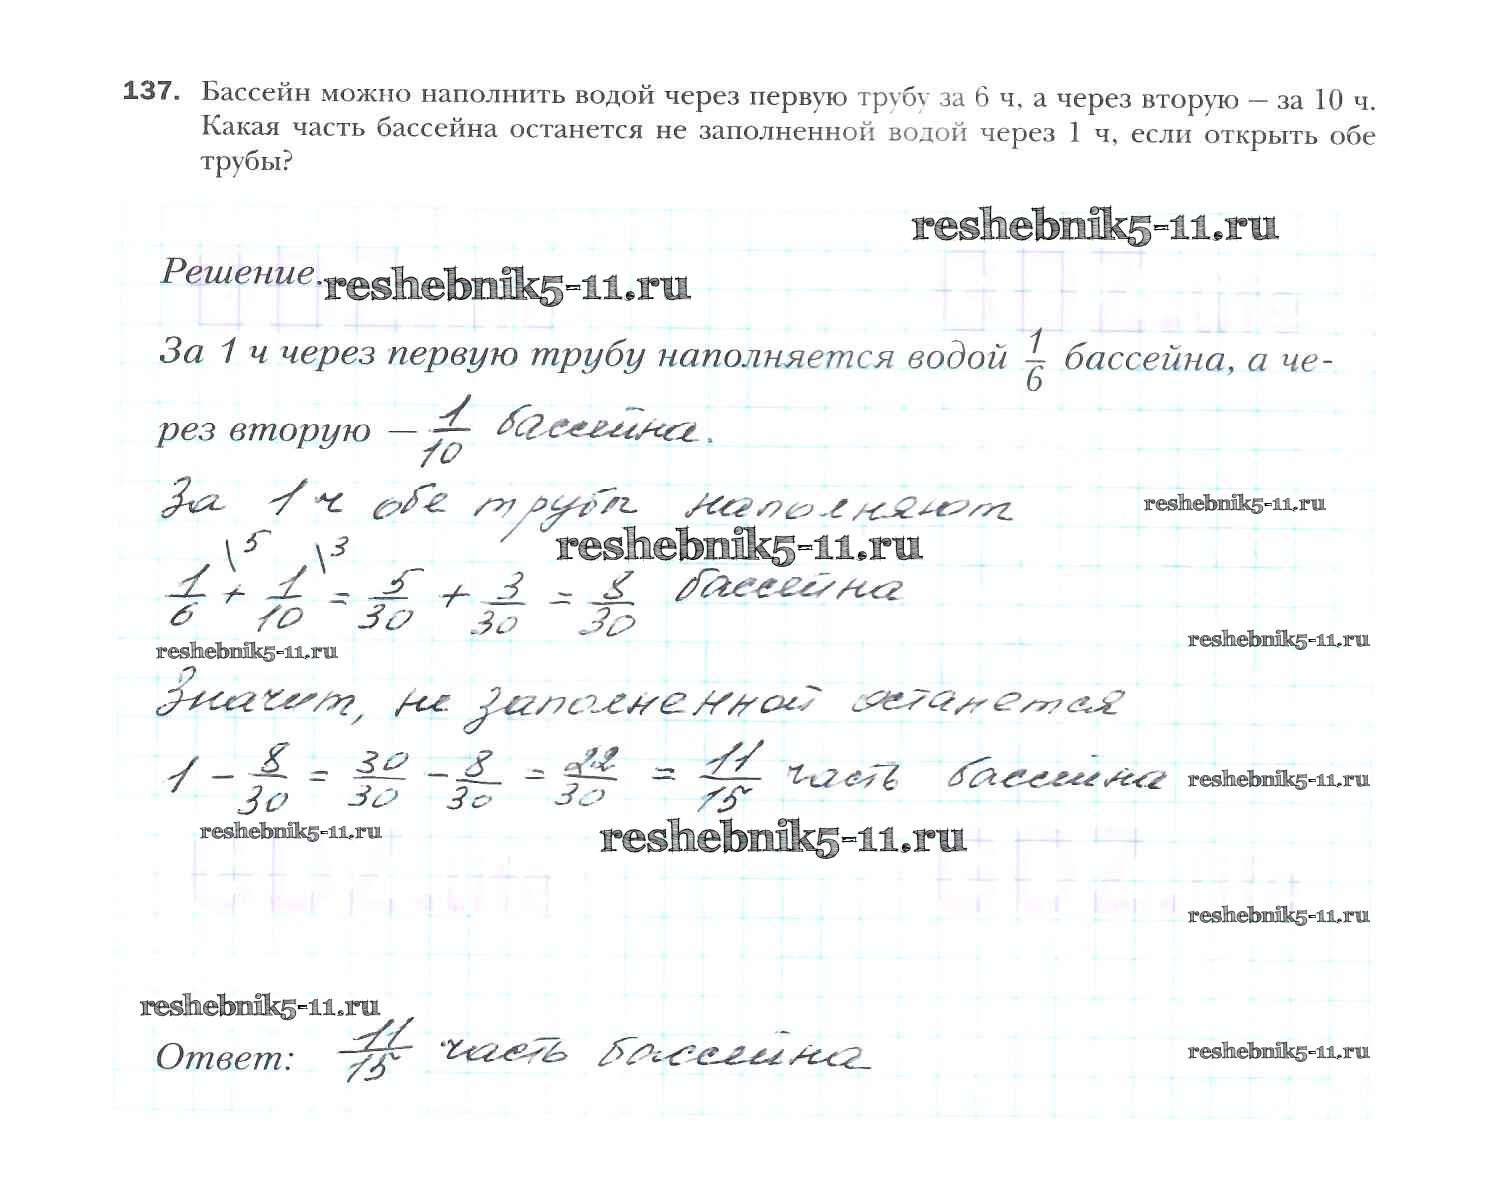 137. Бассейн можно наполнить водой через первую трубу за 6 ч, а через вторую – за 10 ч.
Какая часть бассейна останется не заполненной водой через 1 ч, если открыть обе
трубы?
reshebnik5-11.ru
Решение.reshebnik5-11.ru
За 1 ч через первую трубу наполняется водой 1/6 бассейна, а че-
рез вторую — 1/10 бассейна.
За 1 ч обе трубы наполняют
reshebnik5-11.ru
reshebnik5-11.ru
1/6\5 + 1/10\3 = 5/30 + 3/30 = 8/30 бассейна
reshebnik5-11.ru
reshebnik5-11.ru
Значит, не заполненной останется
1 - 8/30 = 30/30 - 8/30 = 22/30 = 11/15 часть бассейна
reshebnik5-11.ru
reshebnik5-11.ru
reshebnik5-11.ru
reshebnik5-11.ru
reshebnik5-11.ru
Ответ: 11/15 часть бассейна
reshebnik5-11.ru